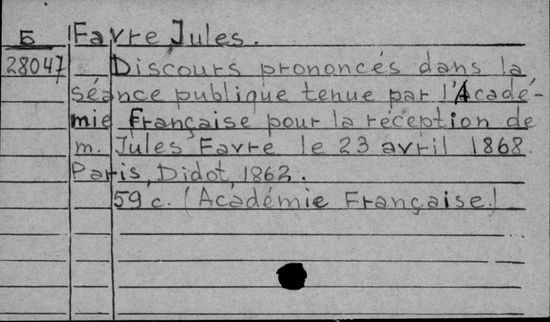 Б Favre Jules.
28047 Discours prononcés dans la
séance publique tenue par l'Acadé-
mie Française pour la réception de
m. Jules Favre le 23 avril 1868.
Paris, Didot, 1862.
59 c. (Académie Française.)